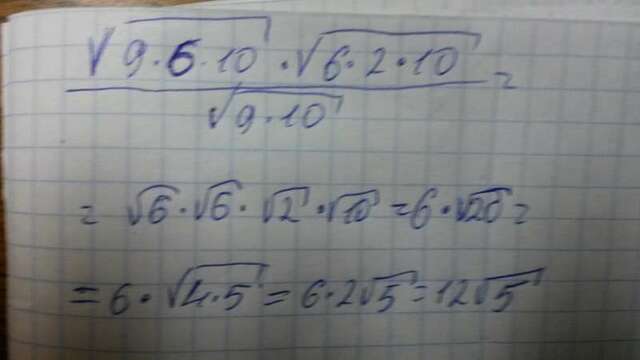 √9·6·10 · √6·2·10 =
√9·10
= √6·√6·√2·√10 = 6·√20 =
= 6·√4·5 = 6·2√5 = 12√5